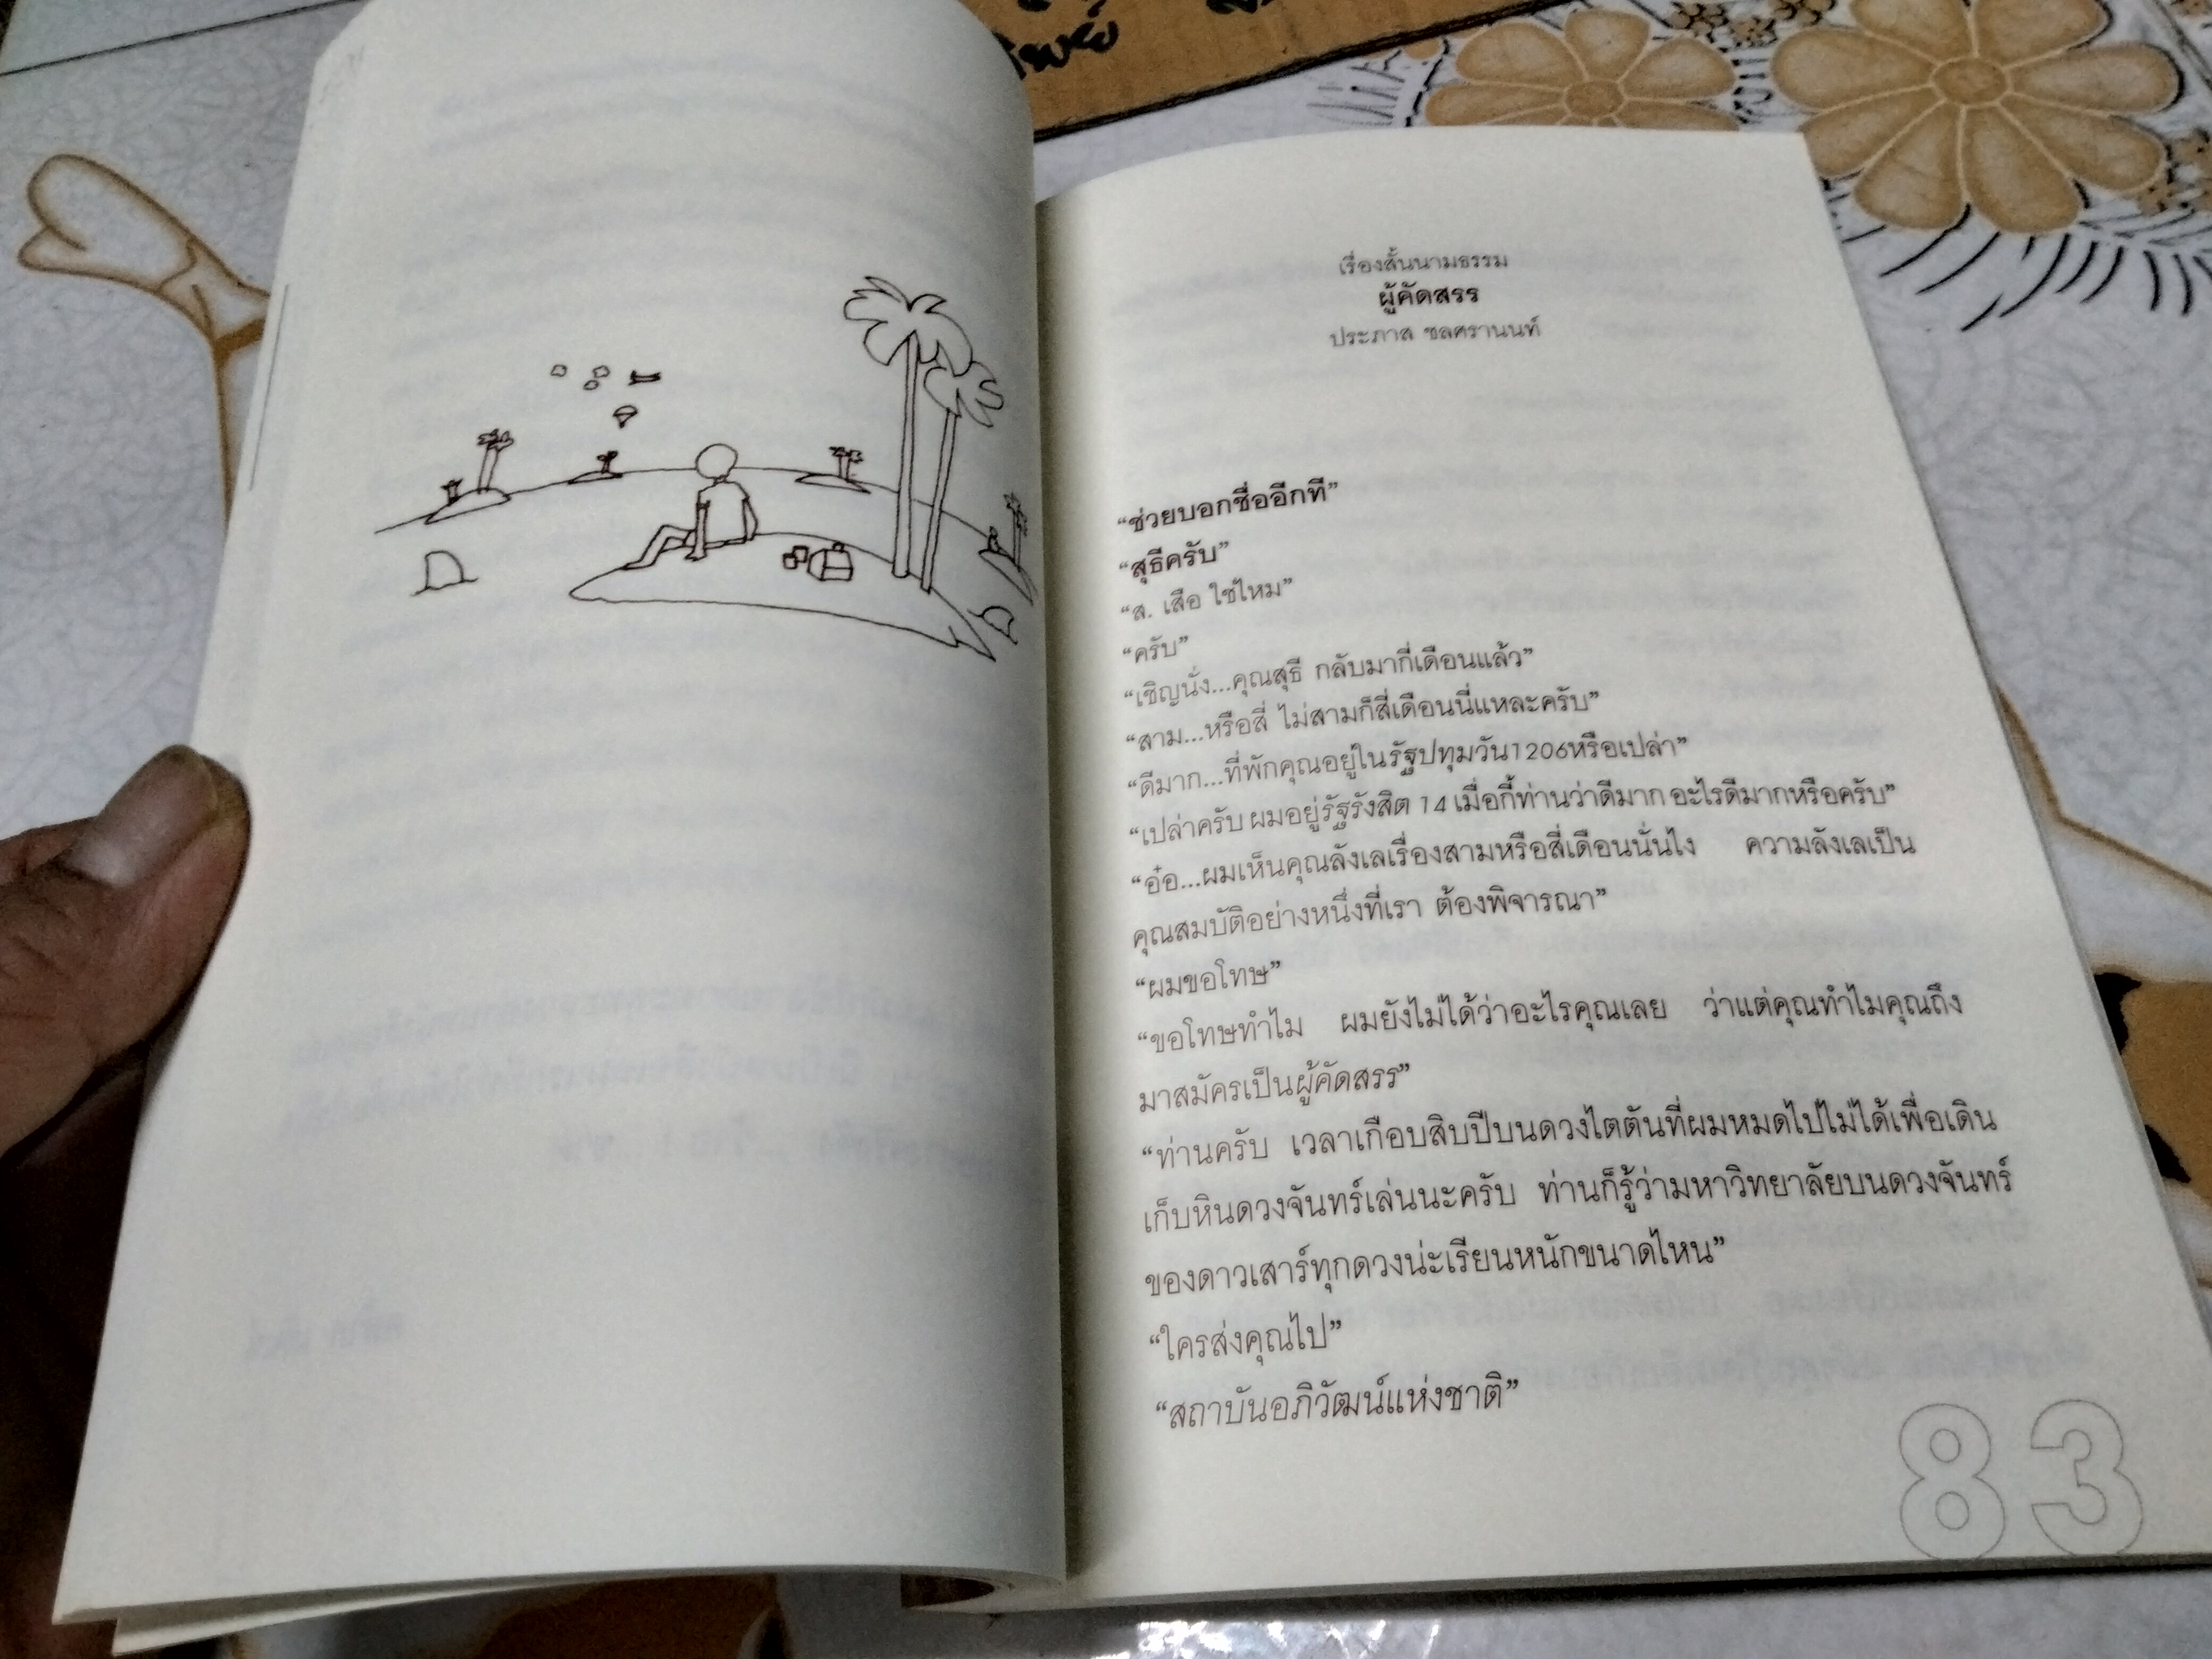 เรื่องสั้นนามธรรม
ผู้คัดสรร
ประภาส ชลศรานนท์
“ช่วยบอกชื่ออีกที”
“สุธีครับ”
“ส. เสือ ใช่ไหม”
“ครับ”
“เชิญนั่ง...คุณสุธี กลับมากี่เดือนแล้ว”
“สาม...หรือสี่ ไม่สามก็สี่เดือนนี่แหละครับ”
“ดีมาก...ที่พักคุณอยู่ในรัฐปทุมวัน1206หรือเปล่า”
“เปล่าครับ ผมอยู่รัฐรังสิต 14 เมื่อกี้ท่านว่าดีมาก อะไรดีมากหรือครับ”
“อ๋อ...ผมเห็นคุณลังเลเรื่องสามหรือสี่เดือนนั่นไง ความลังเลเป็น
คุณสมบัติอย่างหนึ่งที่เรา ต้องพิจารณา”
“ผมขอโทษ”
“ขอโทษทำไม ผมยังไม่ได้ว่าอะไรคุณเลย ว่าแต่คุณทำไมคุณถึง
มาสมัครเป็นผู้คัดสรร”
“ท่านครับ เวลาเกือบสิบปีบนดวงไตตันที่ผมหมดไปไม่ได้เพื่อเดิน
เก็บหินดวงจันทร์เล่นนะครับ ท่านก็รู้ว่ามหาวิทยาลัยบนดวงจันทร์
ของดาวเสาร์ทุกดวงน่ะเรียนหนักขนาดไหน”
“ใครส่งคุณไป”
“สถาบันอภิวัฒน์แห่งชาติ”
83